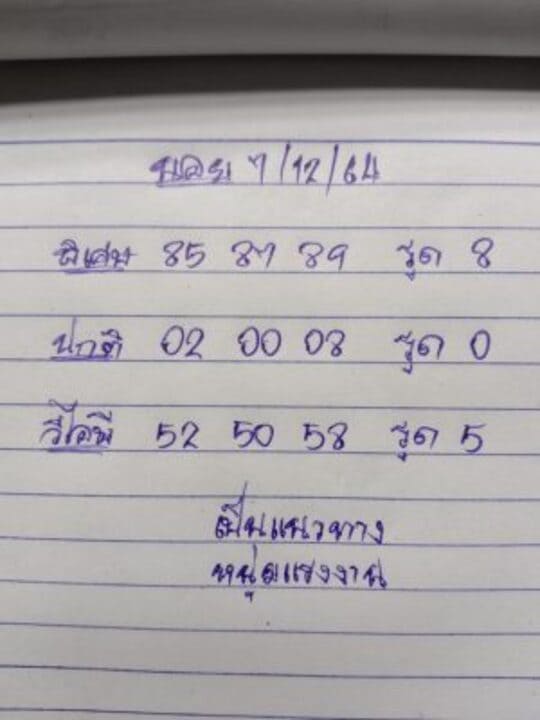 ฮานอย 7/12/64
พิเศษ 85 87 89 รูด 8
ปกติ 02 00 08 รูด 0
วีไอพี 52 50 58 รูด 5
เป็นแนวทาง
หนุ่มแรงงาน